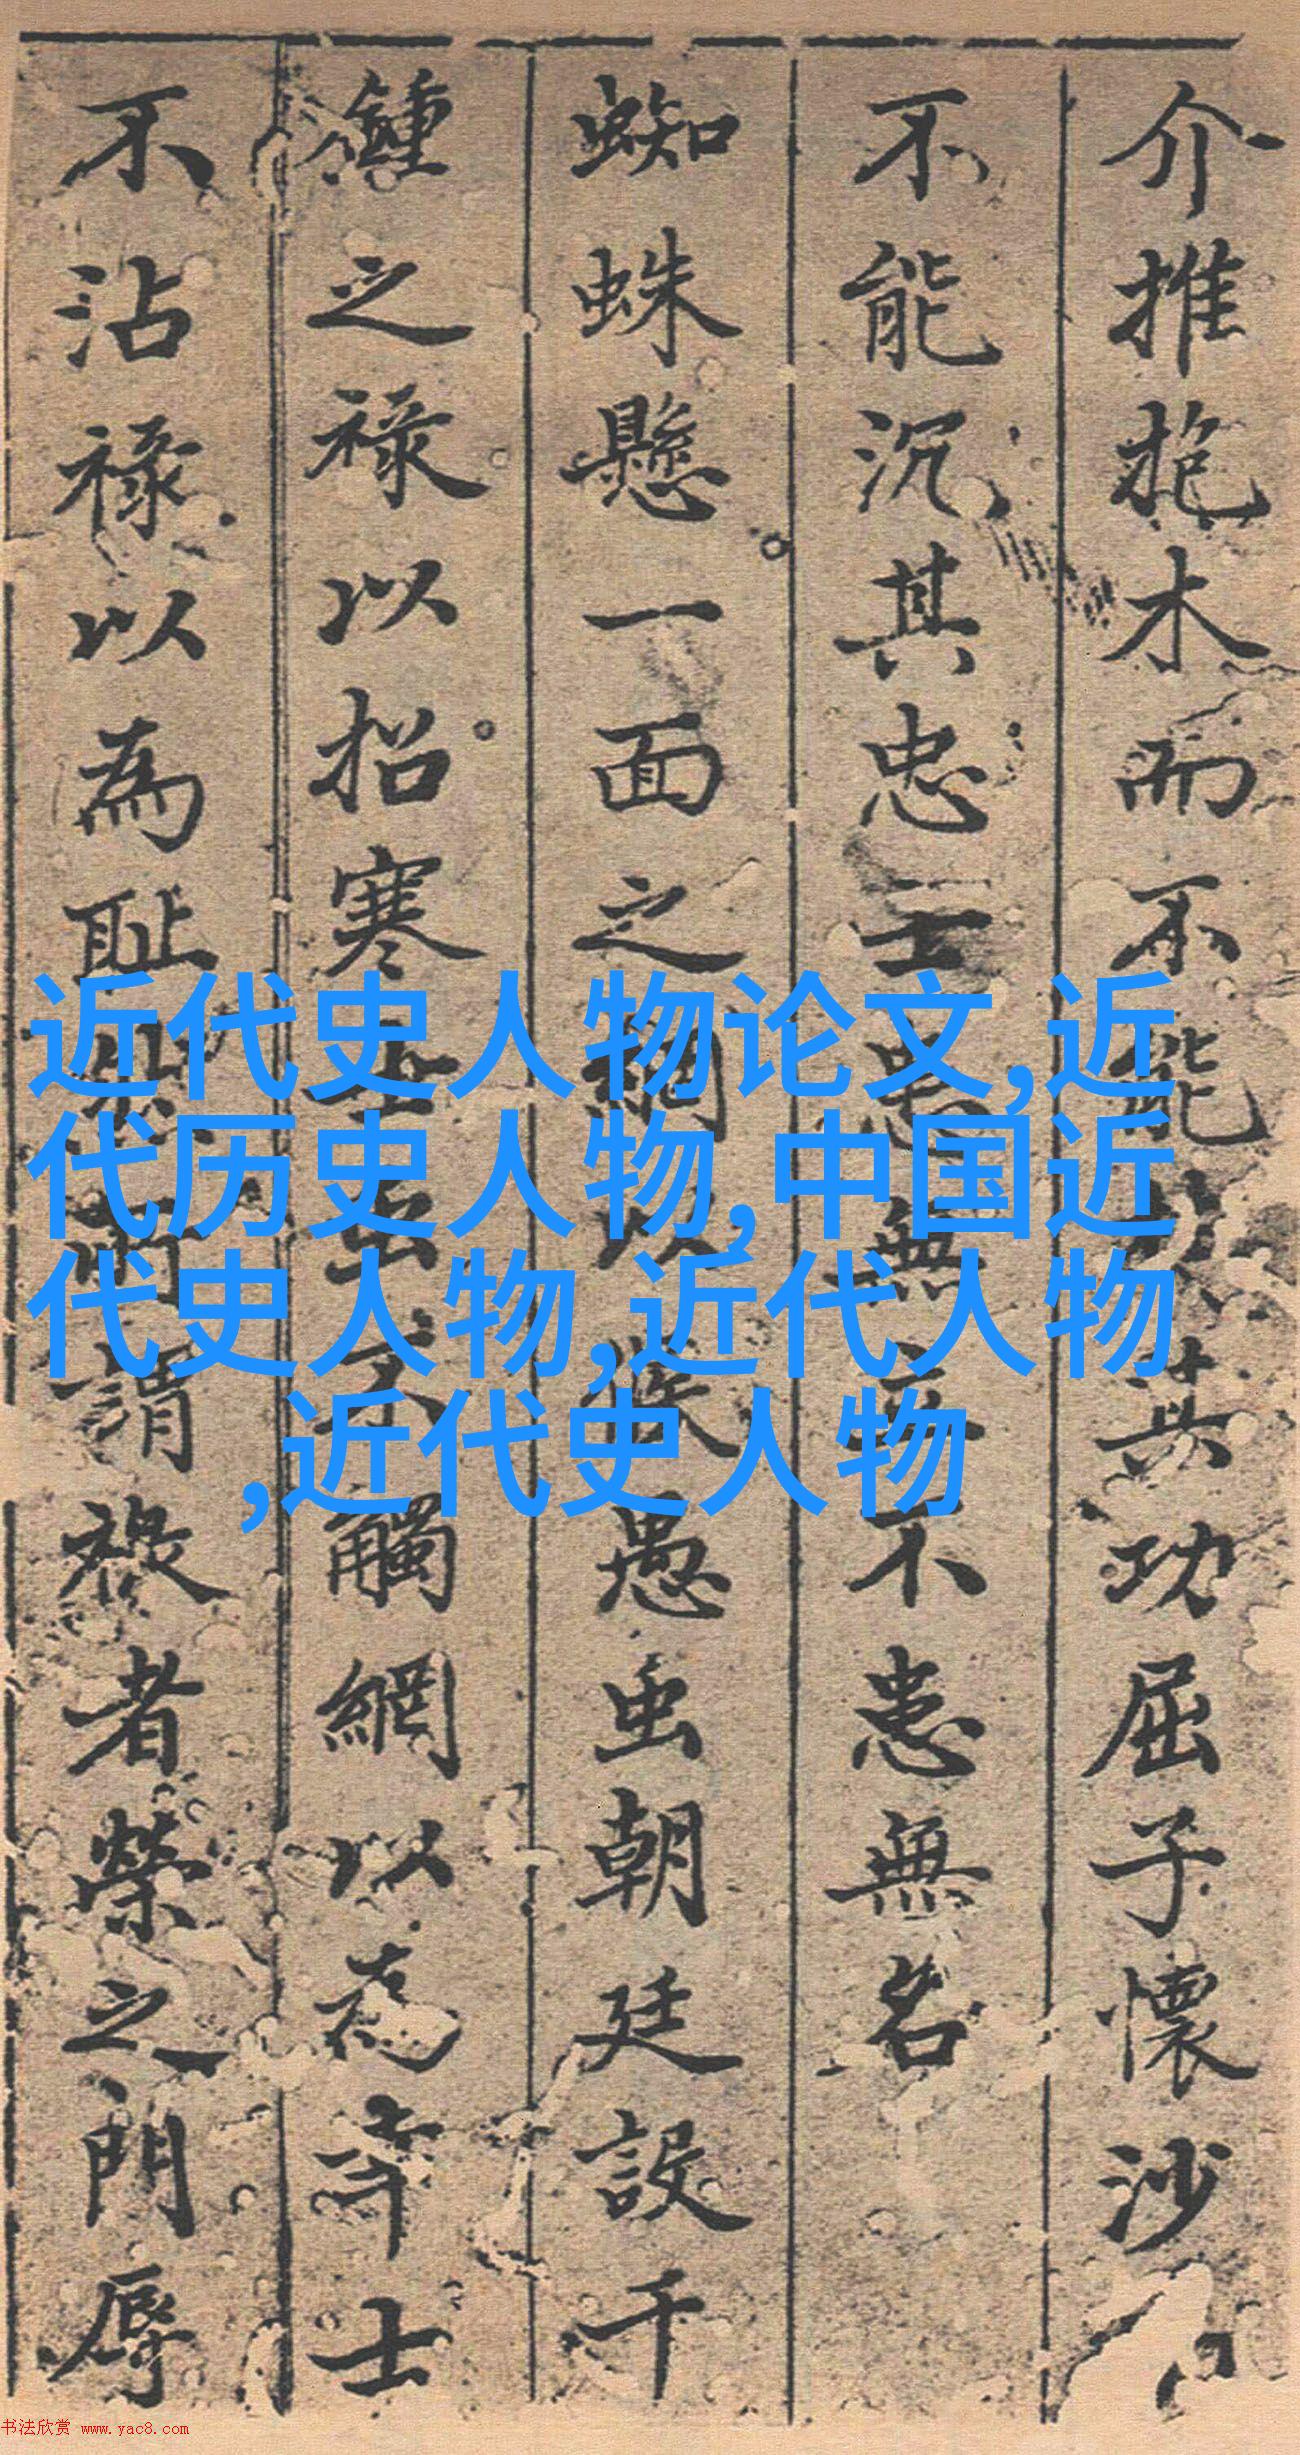 介推抱木而不能
其功屈子懷沙
不能沉其忠士患無
不患無名
蜘蛛懸一面之網以
愚虫朝廷設千
鍾之祿以招寒士虫不
觸網以為
士
不沾祿以為耻
謂
祿者榮之門辱
近代史人物论文,近
代历史人物,中国近
代史人物,近代人物
,近代史人物
书法欣赏 www.yac8.com